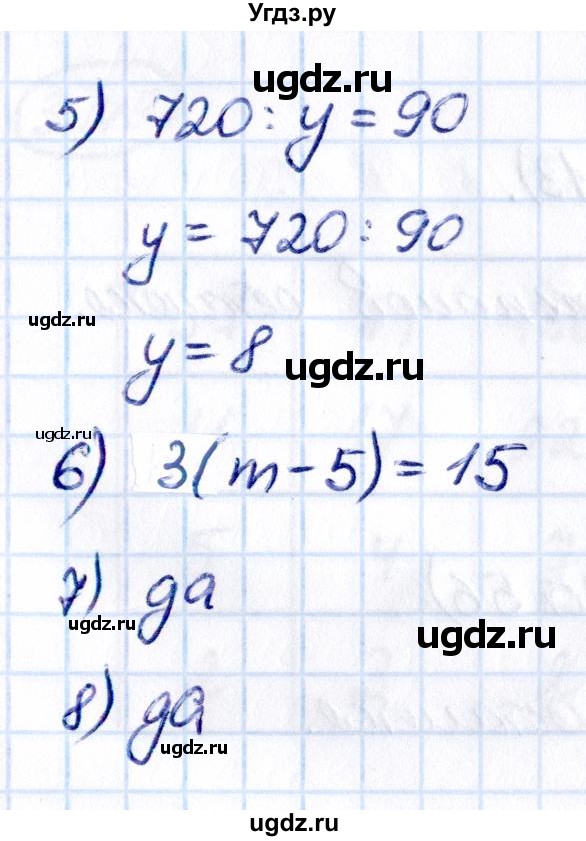 Угдз.ру
ugdz.ru
5) 720 : y = 90
y = 720 : 90
ugdz.ru
y = 8
ugdz.ru
ugdz.ru
6) 3(m - 5) = 15
7) да
ugdz.ru
ugdz.ru
8) да
ugdz.ru
ugdz.ru